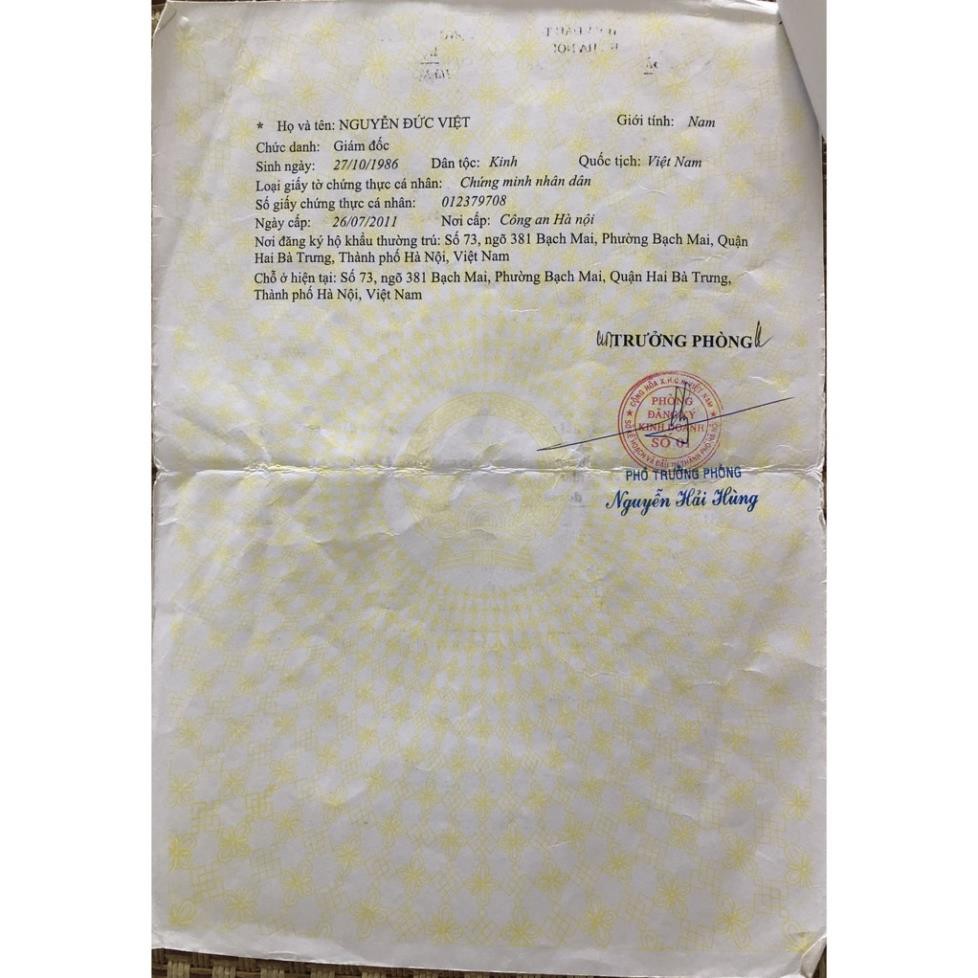 * Họ và tên: NGUYỄN ĐỨC VIỆT Giới tính: Nam
Chức danh: Giám đốc
Sinh ngày: 27/10/1986 Dân tộc: Kinh Quốc tịch: Việt Nam
Loại giấy tờ chứng thực cá nhân: Chứng minh nhân dân
Số giấy chứng thực cá nhân: 012379708
Ngày cấp: 26/07/2011 Nơi cấp: Công an Hà nội
Nơi đăng ký hộ khẩu thường trú: Số 73, ngõ 381 Bạch Mai, Phường Bạch Mai, Quận
Hai Bà Trưng, Thành phố Hà Nội, Việt Nam
Chỗ ở hiện tại: Số 73, ngõ 381 Bạch Mai, Phường Bạch Mai, Quận Hai Bà Trưng,
Thành phố Hà Nội, Việt Nam
TRƯỞNG PHÒNG
CỘNG HÒA X.H.C.N VIỆT NAM
PHÒNG
ĐĂNG KÝ
KINH DOANH
SỐ 01
PHÓ TRƯỞNG PHÒNG
Nguyễn Hải Hùng